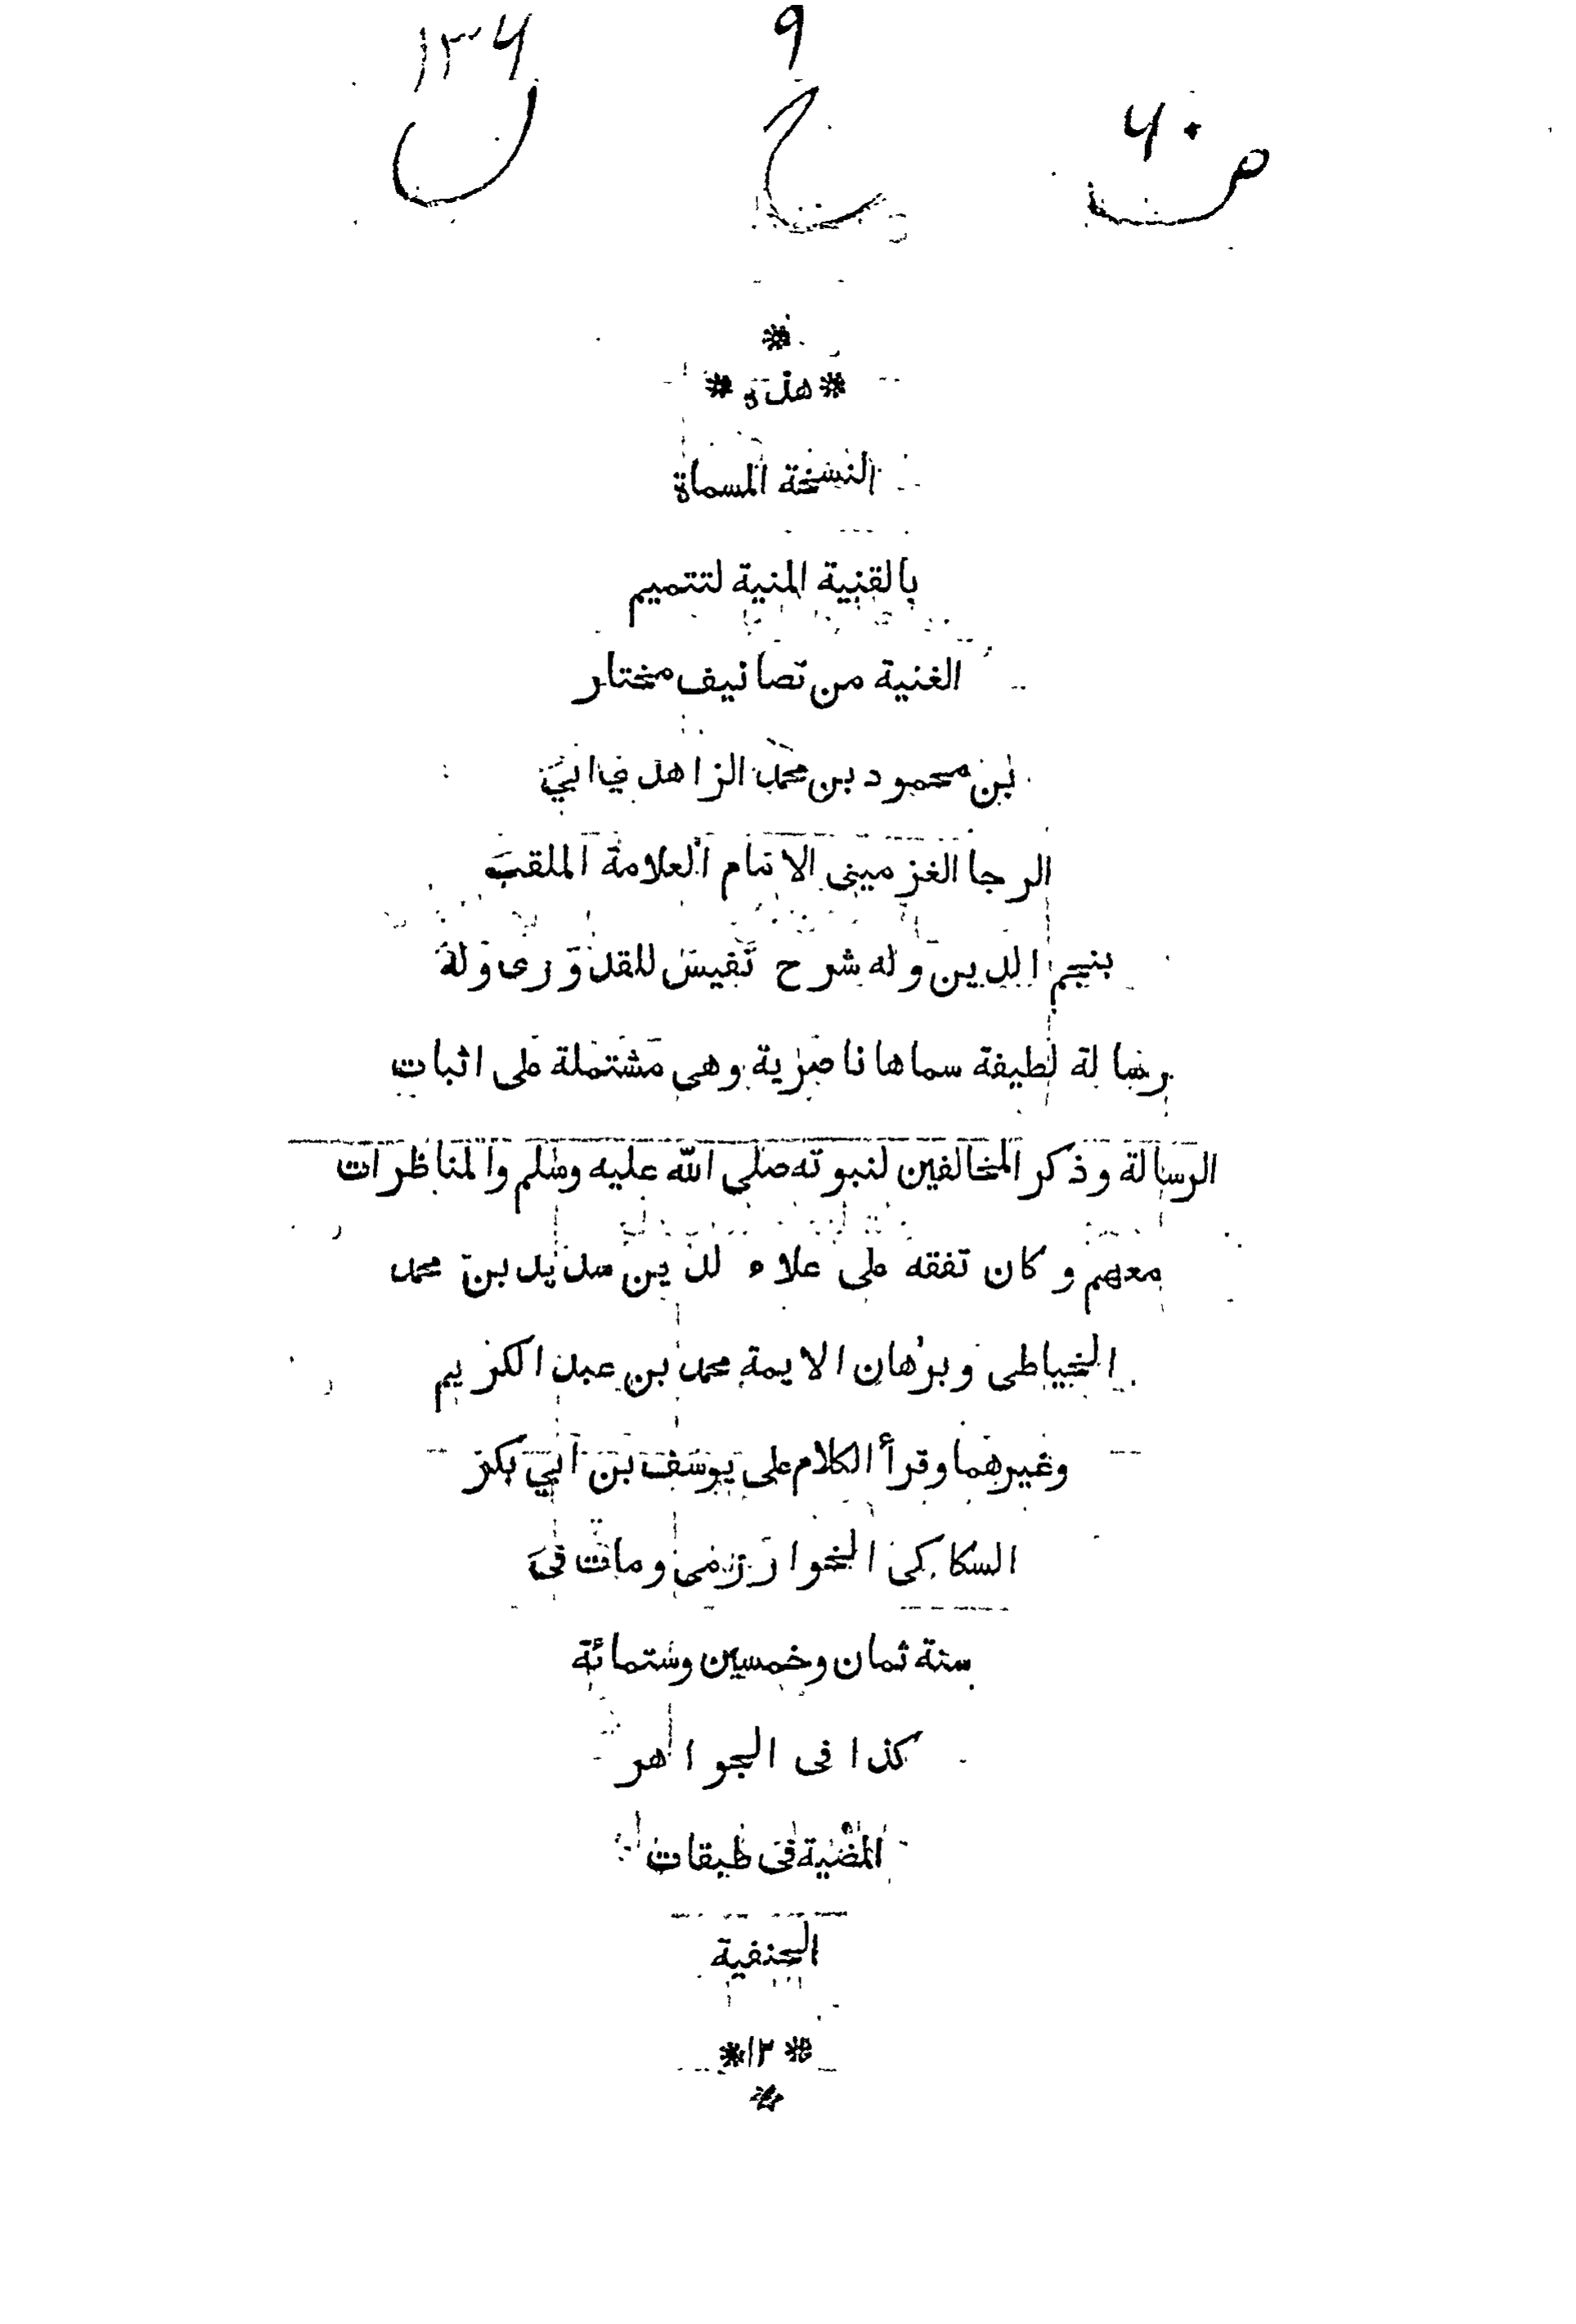 ۱۳۶ ۹ ۶۰
ل ح ص
*
* هذه *
النسخة المسماة
بالقنية المنية لتتميم
الغنية من تصانيف مختار
بن محمود بن محمد الزاهدي ابي
الرجا الغزميني الامام العلامة الملقب
بنجم الدين وله شرح نفيس للقدوري وله
رسالة لطيفة سماها ناصرية وهي مشتملة على اثبات
الرسالة وذكر المخالفين لنبوته صلى الله عليه وسلم والمناظرات
معهم وكان تفقه على علاء لدين سديد بن محمد
الخياطى وبرهان الايمة محمد بن عبد الكريم
وغيرهما وقرأ الكلام على يوسف بن ابي بكر
السكاكى الخوارزمى ومات فى
سنة ثمان وخمسين وستمائة
كذا فى الجواهر
المضية فى طبقات
الحنفية
* ۱۲ *
*